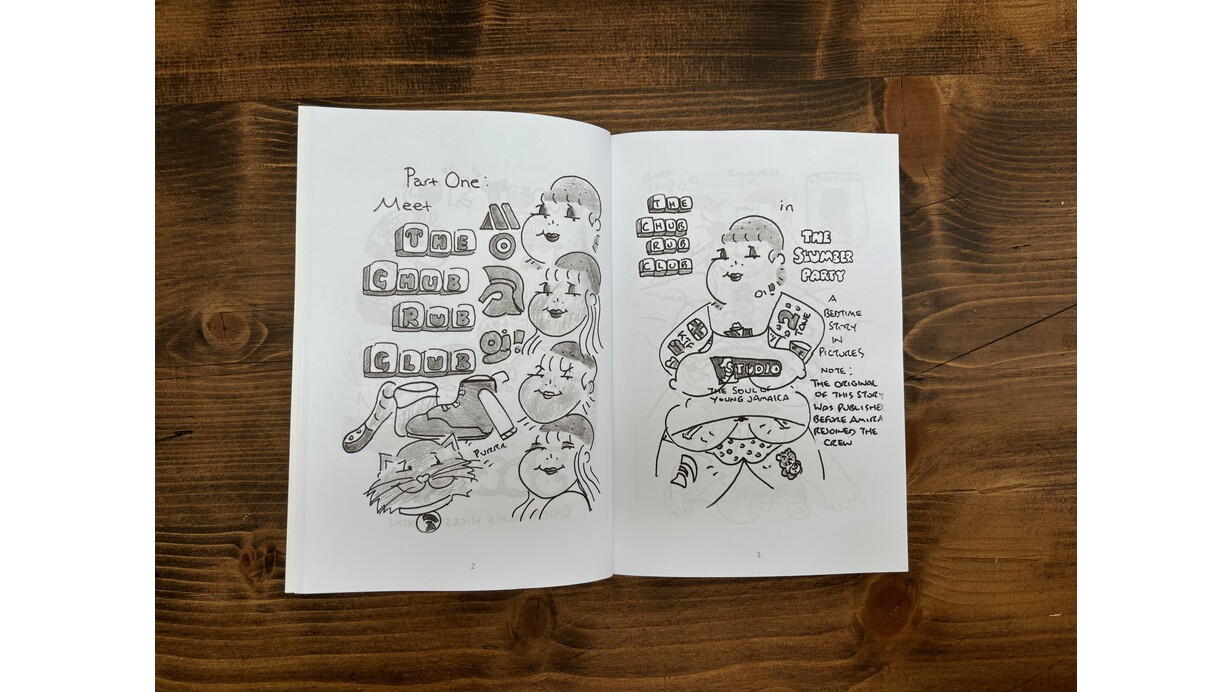 Part One:
Meet
THE
CHUB
RUB
CLUB
oi!
PURRR
2
THE
CHUB
RUB
CLUB
in
THE
SLUMBER
PARTY
A
BEDTIME
STORY
IN
PICTURES
NOTE:
THE ORIGINAL
OF THIS STORY
WAS PUBLISHE
BEFORE AMIRA
REJOINED THE
CREW
OI!
2
TONE
STUDIO
THE SOUL OF
YOUNG JAMAICA
3